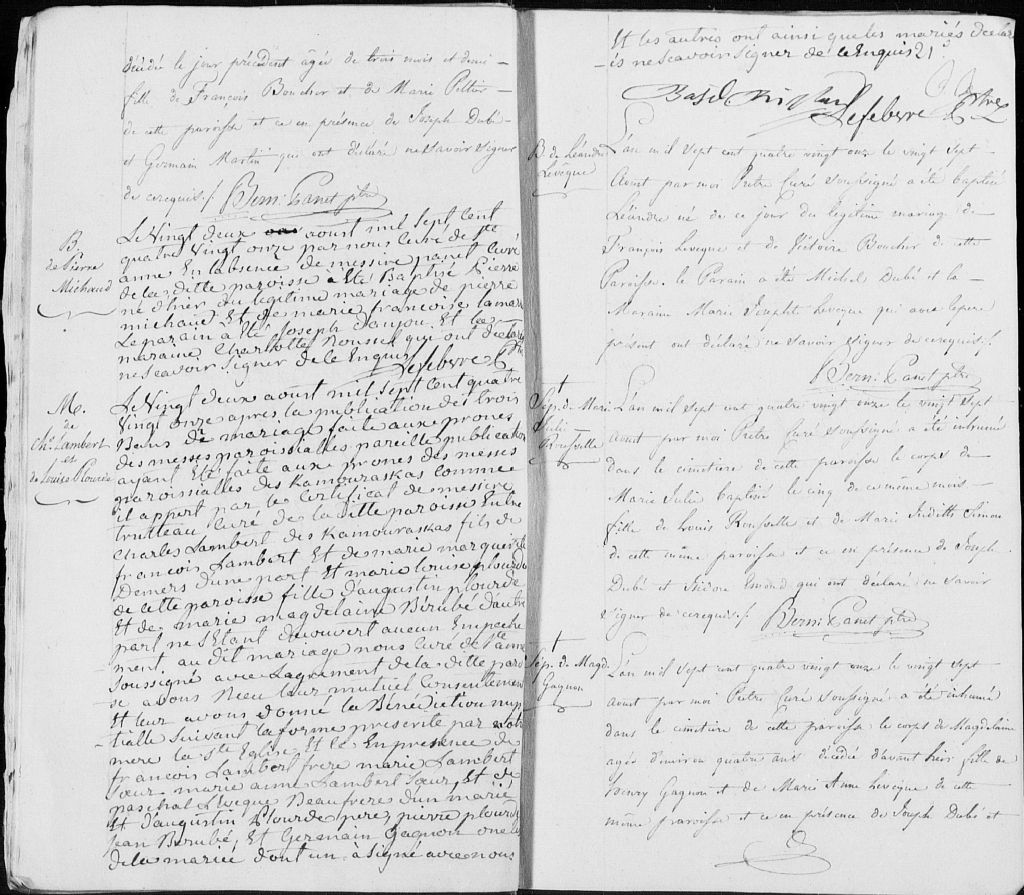 décédé le jour précédent âgée de trois mois et demi
fille de François Boucher et de Marie Peltier
de cette paroisse et ce en présence de Joseph Dubé
et Germain Martin qui ont déclaré ne savoir signer
de ce requis./. Bern: Panet ptre
B.
de Pierre
Michaud
Le Vingt deux aoust mil Sept Cent
quatre Vingt onze par nous Curé de Ste
anne En labsence de messire panet Curé
de la ditte paroisse a Eté Baptisé Pierre
né d'hier du légitime mariage de pierre
michaud Et de marie francoise lamare
Le parain a Eté Joseph Danjou Et la
maraine Charlotte Roussel qui ont déclaré
ne scavoir signer de le Enquis
Lefebvre Ptre
M.
de
Chs. Lambert
et
de Louise Plourde
Le Vingt deux aoust mil Sept Cent quatre
Vingt onze après la publication des trois
Bans de mariage faite aux prones
des messes paroissialles pareille publication
ayant Eté faite aux prones des messes
paroissialles des Kamouraskas comme
il appert par le Certificat de messire
trutteau Curé de la ditte paroisse Entre
Charles Lambert des Kamouraskas fils de
francois Lambert Et de marie marguerite
Demers d'une part Et marie louise plourde
de cette paroisse fille d'augustin plourde
Et de marie magdelaine Birubé d'autre
part ne s'Etant découvert aucun Empeche
ment, au dit mariage nous Curé de Ste anne
soussigné avec lagrement de la ditte parois
se avons Recu leur mutuel Consentement
Et leur avons donné la Bénédiction nup
tialle suivant la forme prescrite par notre
mere la Ste Eglise Et ce En presence de
francois Lambert frere marie Lambert
sœur marie anne Lambert sœur, Et de
paschal Levêque Beaufrere d'un marié
Et d'augustin Plourde pere, pierre plourde
Jean Birubé, Et Germain Gagnon oncles
de la mariée dont un a signé avec nous
Et les autres ont ainsi que les mariés decla
rés ne scavoir signer de le Enquis
Lefebvre Ptre
B. de Léandre
Levêque
L'an mil sept cent quatre vingt onze le vingt sept
Aoust par moi Pretre Curé soussigné a été baptisé
Léandre né de ce jour du légitime mariage de
François Leveque et de Victoire Boucher de cette
Paroisse. le Parain a été Michel Dubé et la
Maraine Marie Josephte Leveque qui avec le pere
présent ont déclaré ne savoir signer de ce requis./.
Bern: Panet ptre
Sép. de Marie
Julie
Rousselle
L'an mil sept cent quatre vingt onze le vingt sept
Aoust par moi Pretre Curé soussigné a été inhumé
dans le cimetière de cette paroisse le corps de
Marie Julie baptisée le cinq de ce même mois
fille de Louis Rousselle et de Marie Judith Simon
de cette même paroisse et ce en présence de Joseph
Dubé et Isidore Emond qui ont déclaré ne savoir
signer de ce requis./. Bern: Panet ptre
Sép. de Magd.
Gagnon
L'an mil sept cent quatre vingt onze le vingt sept
aoust par moi Pretre Curé soussigné a été inhumé
dans le cimetière de cette paroisse le corps de Magdelaine
agée d'environ quatre ans décédée d'avant hier fille de
Henry Gagnon et de Marie Anne Leveque de cette
même paroisse et ce en présence de Joseph Dubé et